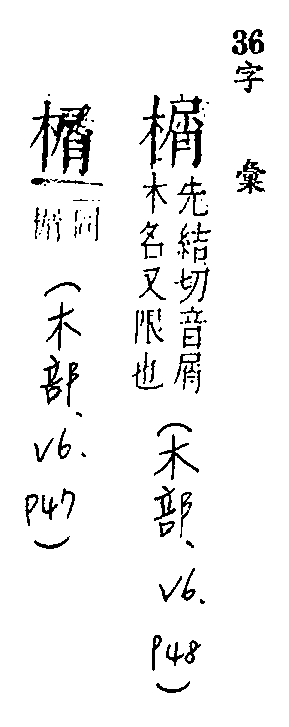 36字彙
榍
先結切音屑
木名又限也
(木部、v6. p48)
同
榍
(木部、v6. p47)